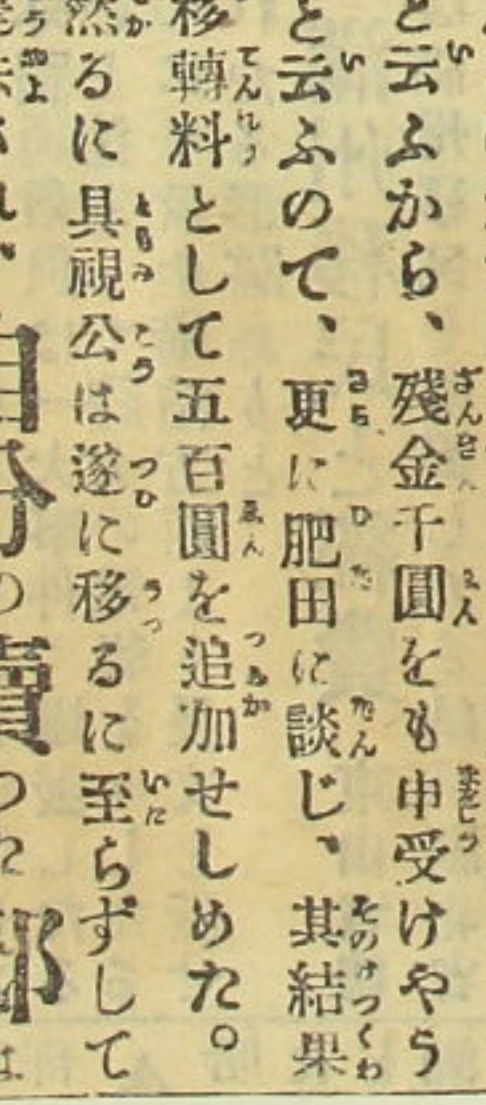 と云ふから、殘金千圓をも申受けやう
と云ふのて、更に肥田に談じ、其結果
移轉料として五百圓を追加せしめた。
然るに具視公は遂に移るに至らずして